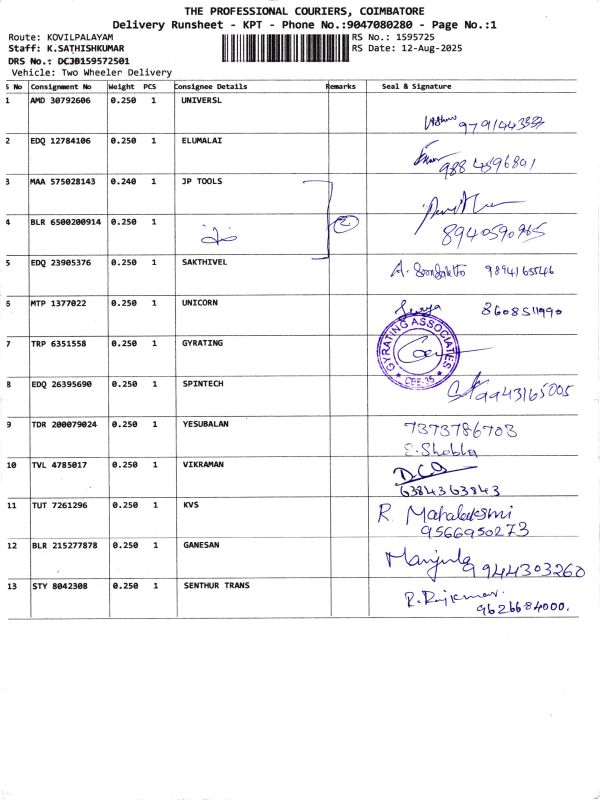 THE PROFESSIONAL COURIERS, COIMBATORE
Delivery Runsheet - KPT - Phone No.:9047080280 - Page No.:1
Route: KOVILPALAYAM RS No.: 1595725
Staff: K.SATHISHKUMAR RS Date: 12-Aug-2025
DRS No.: DCJB159572501
Vehicle: Two Wheeler Delivery
S No Consignment No Weight PCS Consignee Details Remarks Seal & Signature
1 AMD 30792606 0.250 1 UNIVERSL
2 EDQ 12784106 0.250 1 ELUMALAI
9884596801
3 MAA 575028143 0.240 1 JP TOOLS
4 BLR 6500200914 0.250 1 2
8940590965
5 EDQ 23905376 0.250 1 SAKTHIVEL 9894165546
6 MTP 1377022 0.250 1 UNICORN Surya 8608511990
7 TRP 6351558 0.250 1 GYRATING GYRATING ASSOCIATES CBE-35
8 EDQ 26395690 0.250 1 SPINTECH 9943165005
9 TDR 200079024 0.250 1 YESUBALAN 7373786703
E. Shobla
10 TVL 4785017 0.250 1 VIKRAMAN
6384363843
11 TUT 7261296 0.250 1 KVS R. Mahalakshmi
9566950273
12 BLR 215277878 0.250 1 GANESAN Manjula 9944303260
13 STY 8042308 0.250 1 SENTHUR TRANS R. Rajkumar.
9626684000.